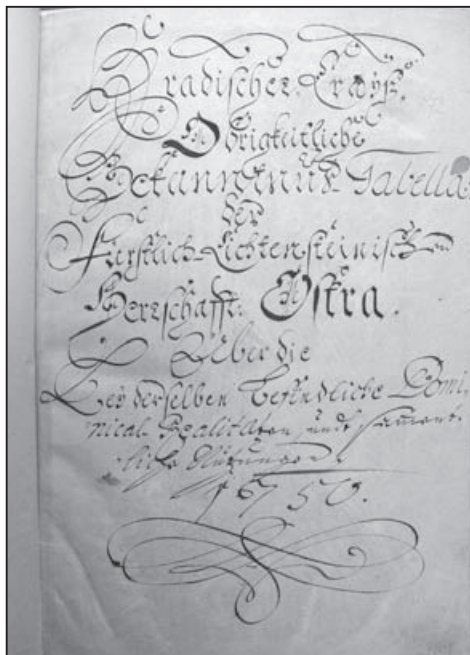 Hradischer Crayß.
Obrigkeitliche
Bekanntnus Tabella
der
Fierstlich-Lichtensteinischen
Herrschafft Ostra.
Über die
bey derselben befindliche Domi-
nical Realitäten undt sament-
liche Nutzungen.
1750.